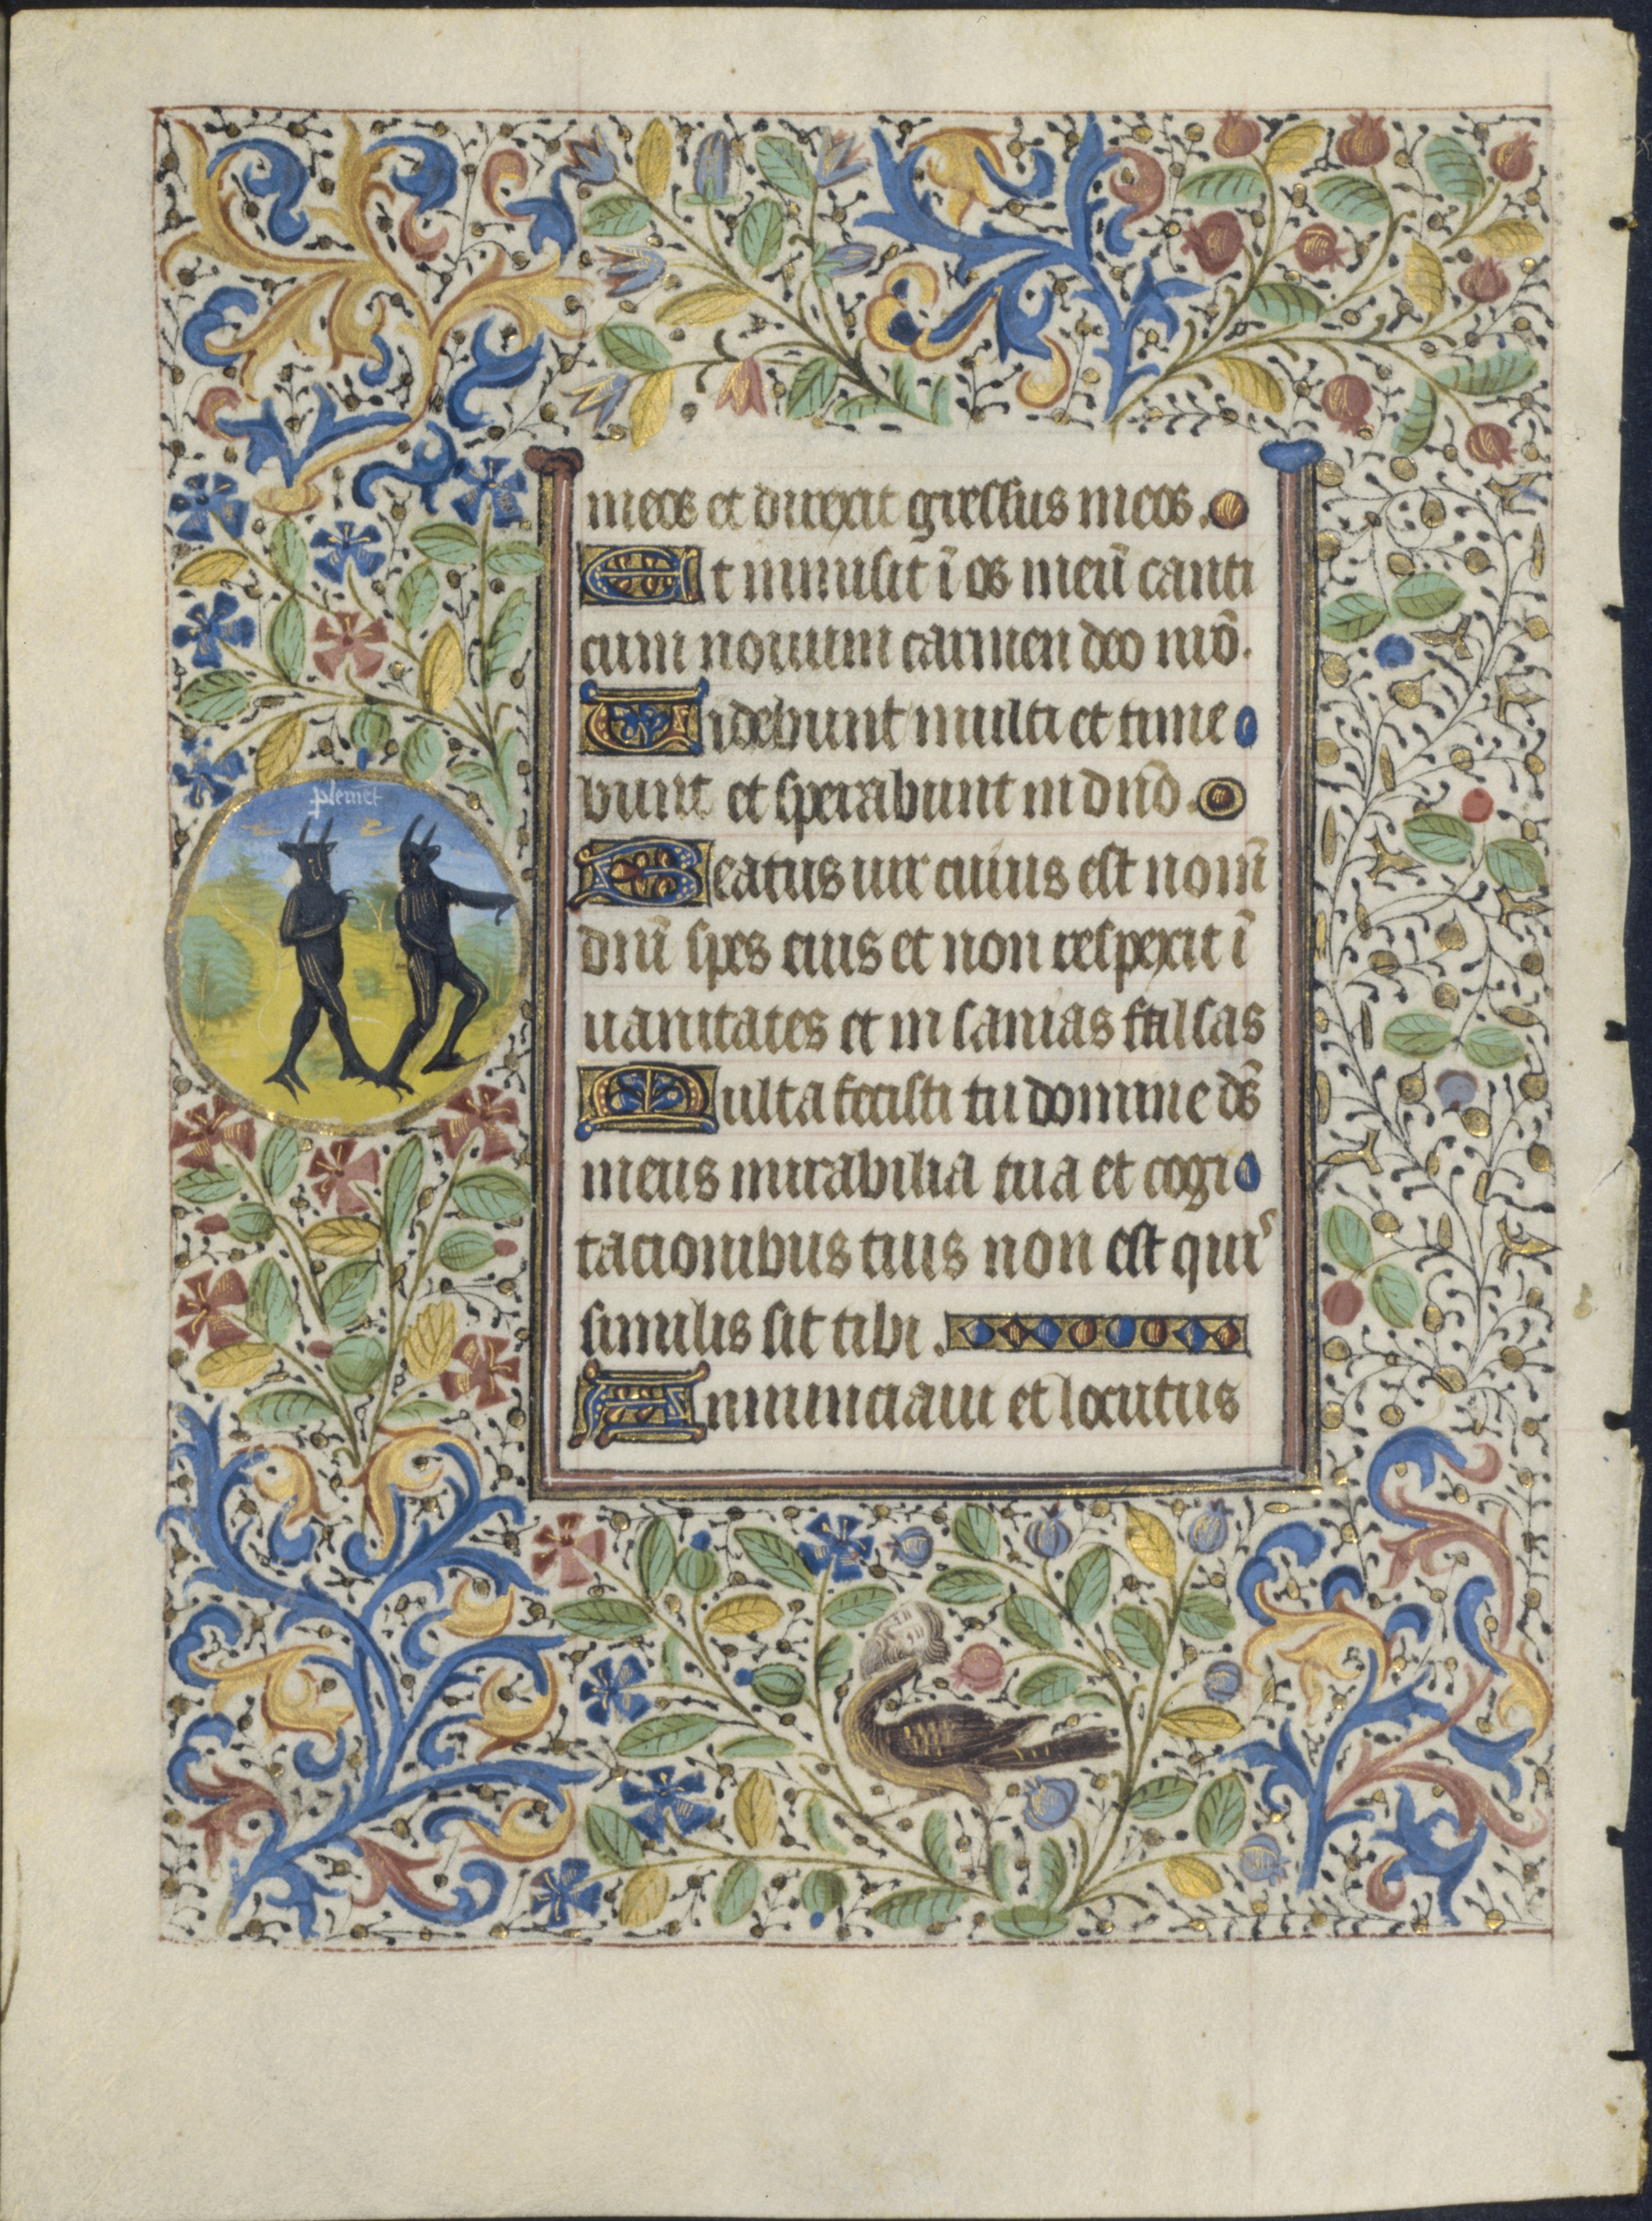 meos et direxit gressus meos.
Et inmisit ī os meū canti
cum nouum carmen deo nrō.
Uidebunt multi et time
bunt et sperabunt in dn̄o.
Beatus uir cuius est nom̄
dn̄i spes eius et non respexit ī
uanitates et in sanias falsas
Multa fecisti tu domine ds̄
meus mirabilia tua et cogi
tacionibus tuis non est quiˢ
similis sit tibi.
Annunciaui et locutus